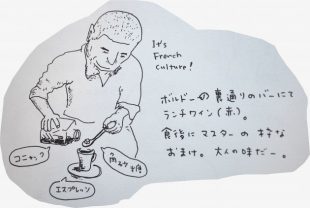 It's
French
Culture!
ボルドーの裏通りのバーにて
ランチワイン(赤)。
食後にマスターの粋な
おまけ。大人の味だー。
コニャック
角砂糖
エスプレッソ